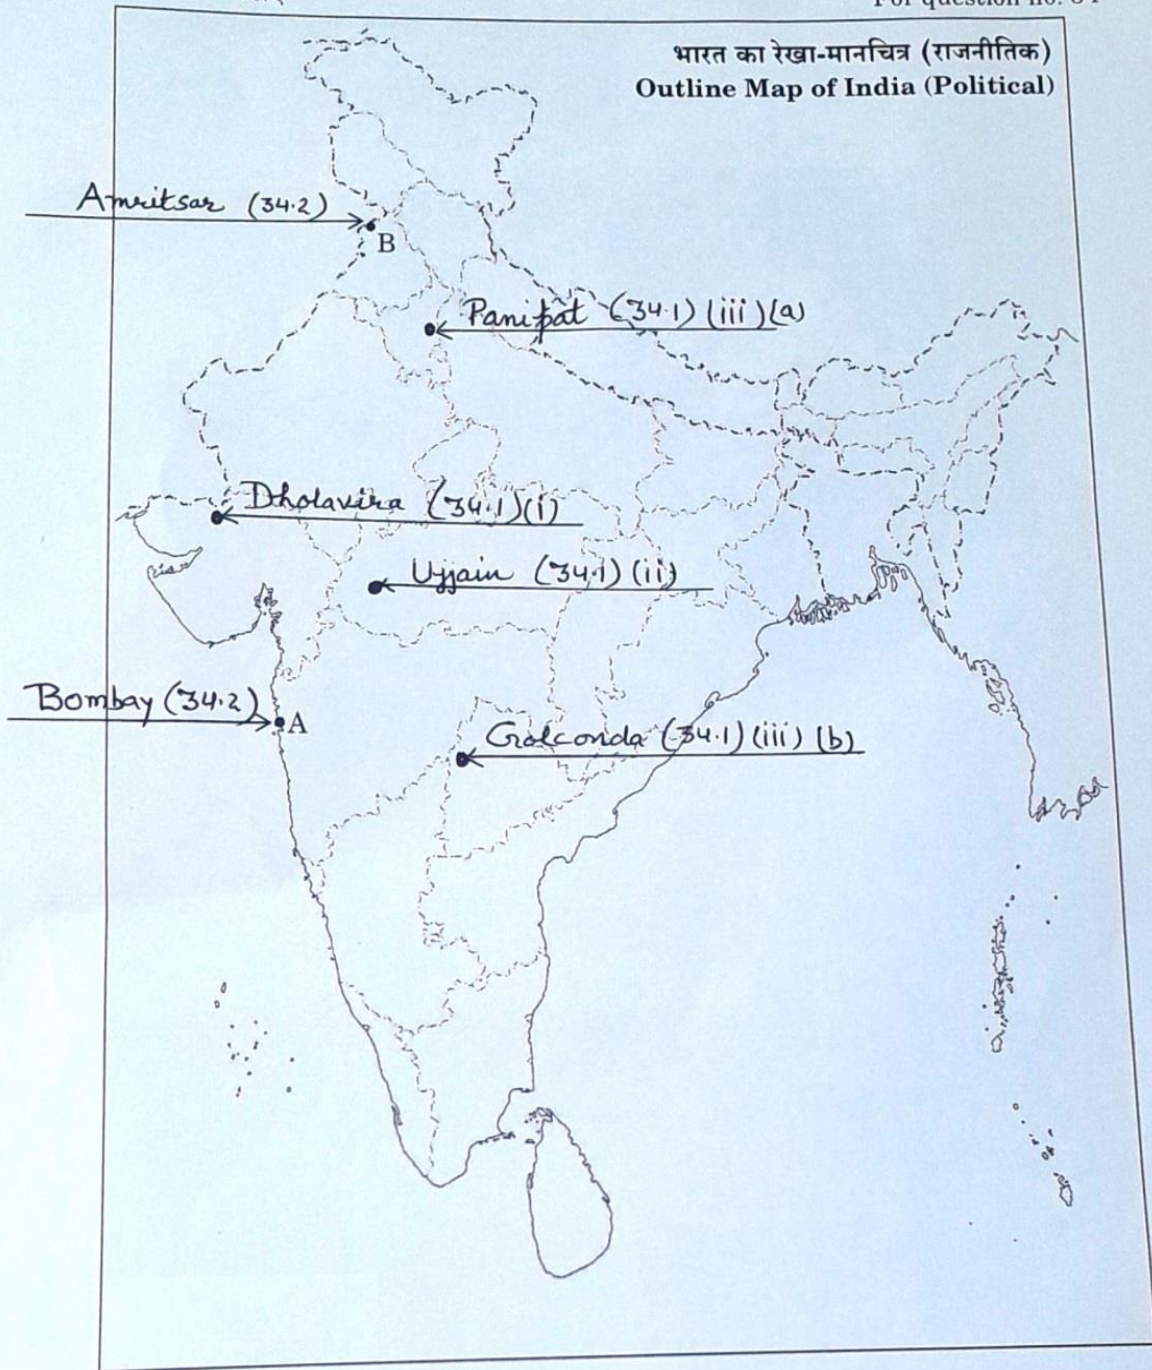 भारत का रेखा-मानचित्र (राजनीतिक)
Outline Map of India (Political)
Amritsar (34.2)
B
Panipat (34.1) (iii) (a)
Dholavira (34.1) (i)
Ujjain (34.1) (ii)
Bombay (34.2)
A
Golconda (34.1) (iii) (b)